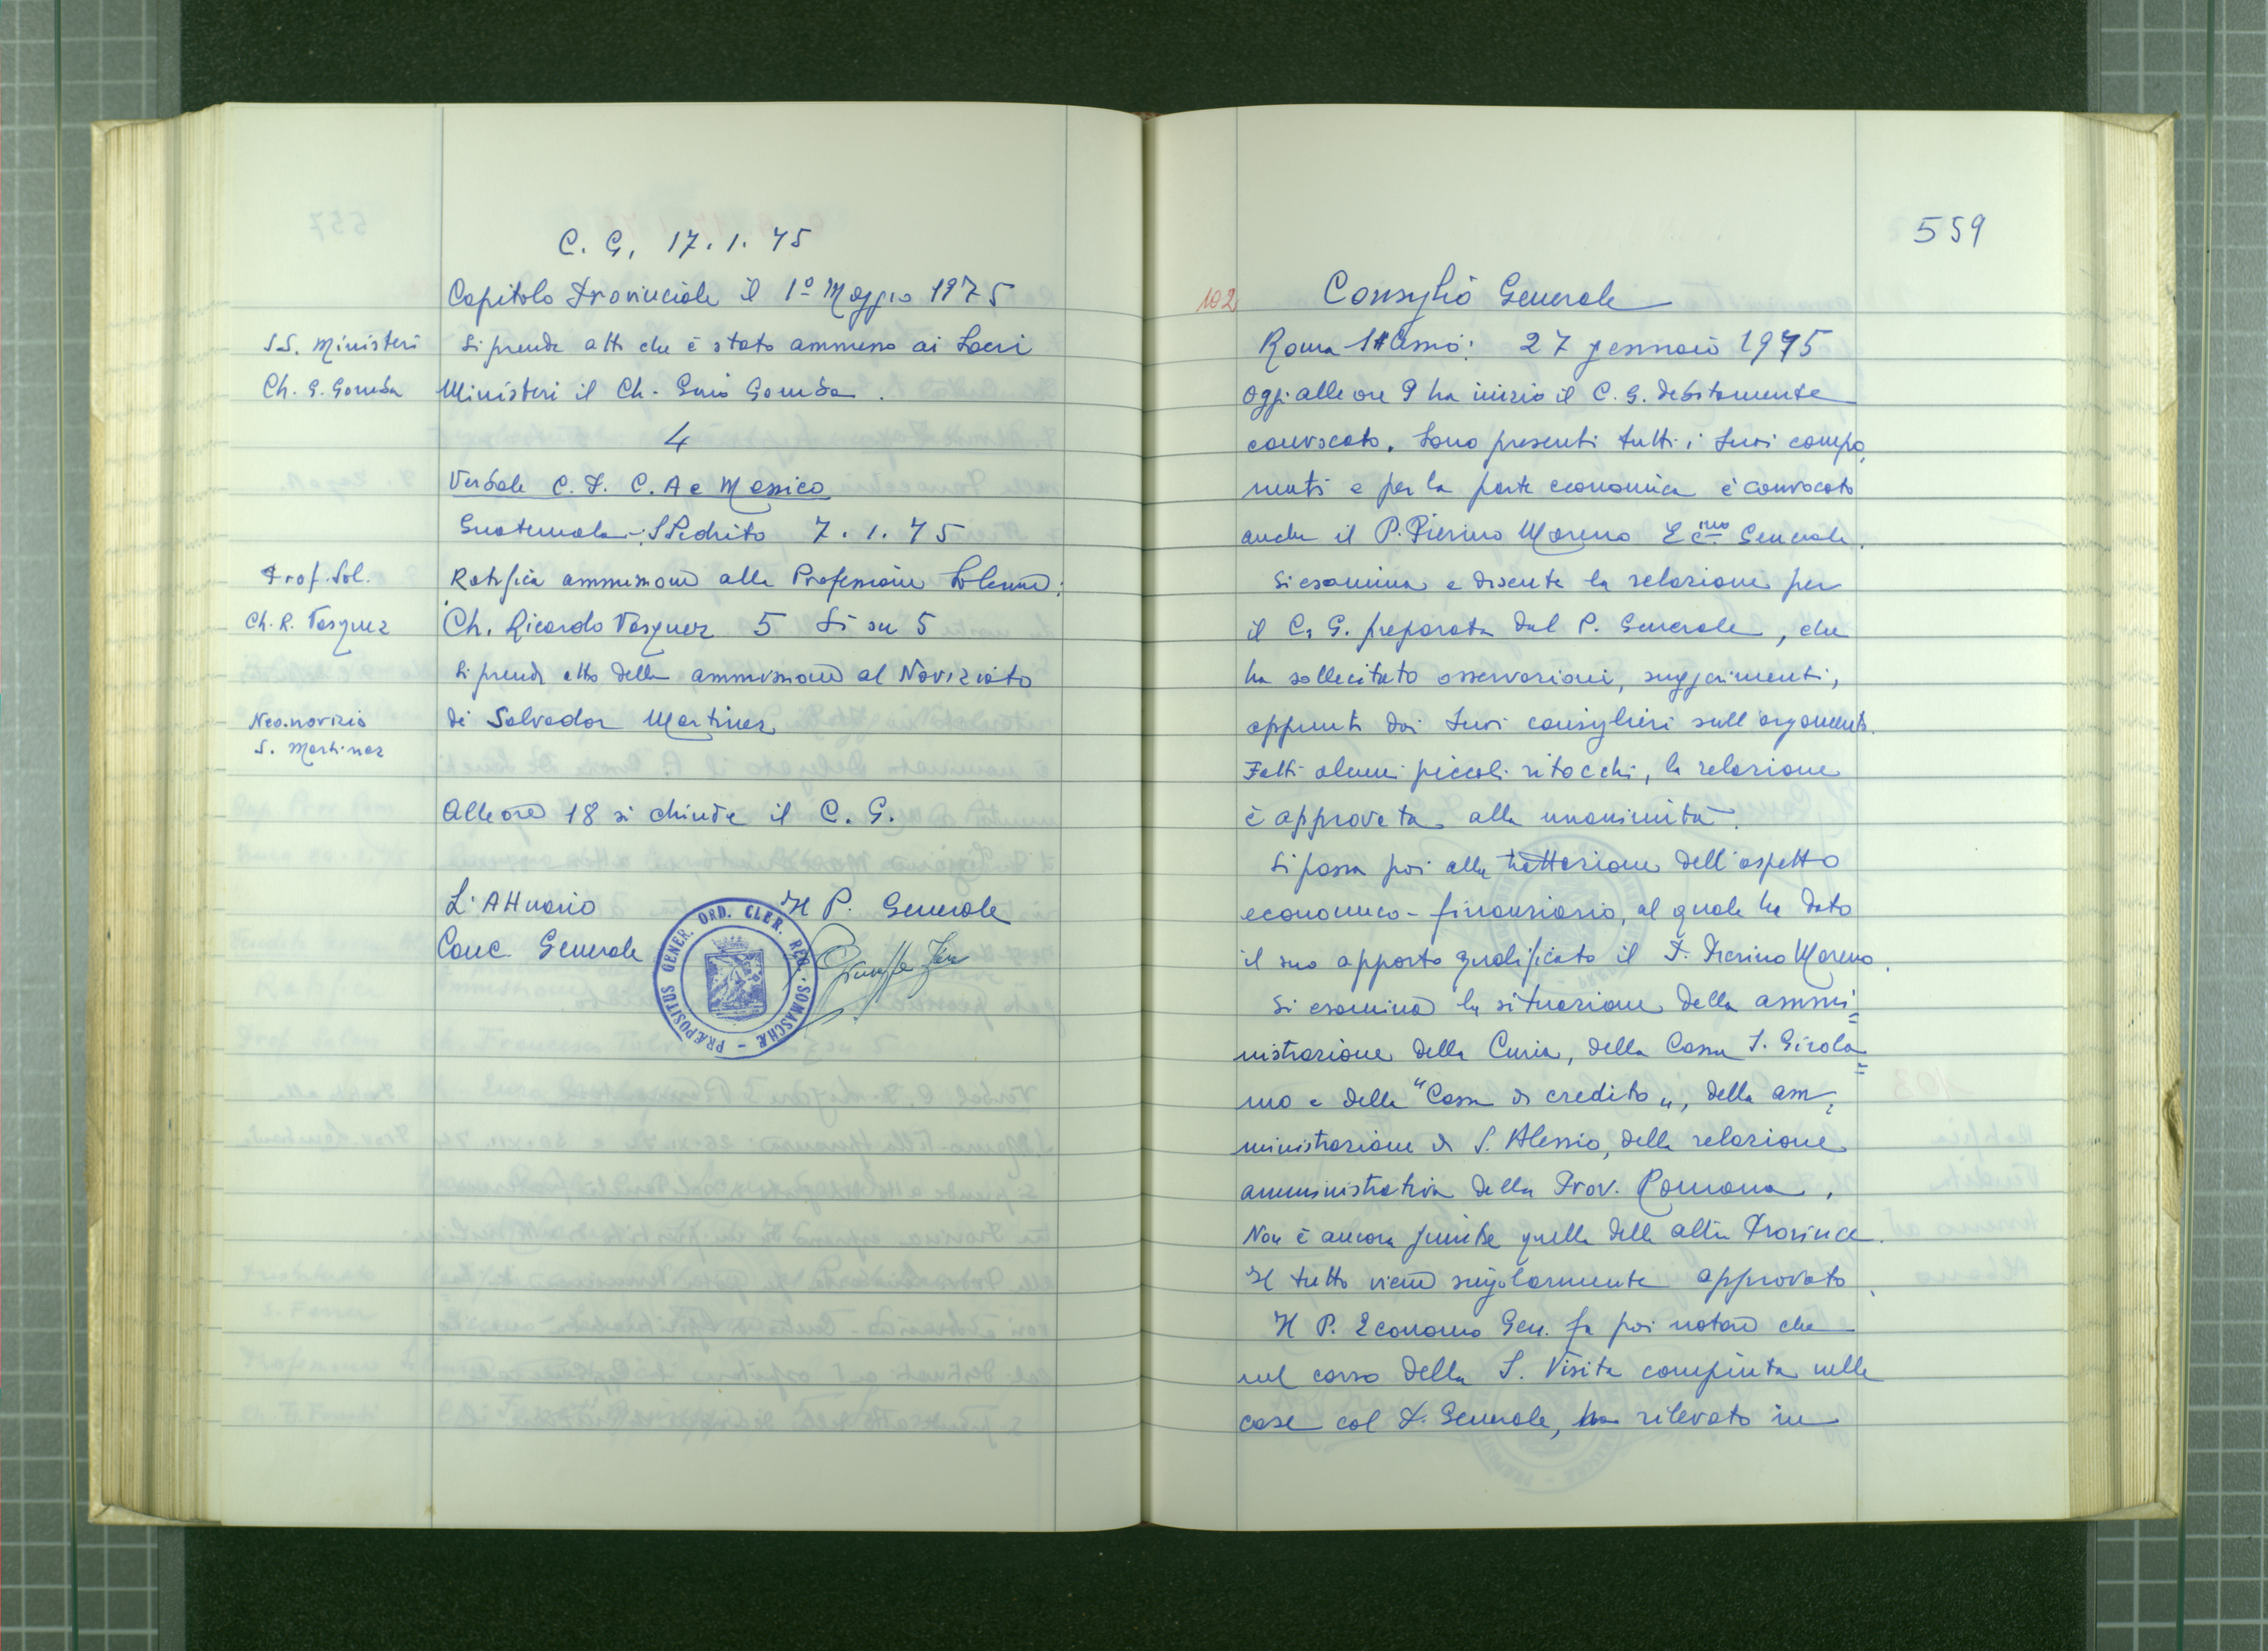 C. G. 17.1.75
Capitolo Provinciale il 1º Maggio 1975
SS. Ministeri
Si prende atto che è stato ammesso ai Sacri
Ch. G. Gomba
Ministeri il Ch. Gomba.
4
Verbale C. P. C. A e Messico
Guatemala - S Pedrito 7.1.75
Prof. Sol.
Ratifica ammissione alla Professione Solenne:
Ch. R. Vasquez
Ch. Ricardo Vasquez 5 Si su 5
Si prende atto della ammissione al Noviziato
Neo-novizio
di Salvador Martinez
S. Martinez
Alle ore 18 si chiude il C. G.
L'Attuario
Il P. Generale
Canc. Generale
PRÆPOSITUS GENER. ORD. CLER. REG. SOMASCHÆ
559
102
Consiglio Generale
Roma - S. Alessio: 27 gennaio 1975
Oggi alle ore 9 ha inizio il C. G. debitamente
convocato. Sono presenti tutti i suoi compo
nenti e per la parte economica è convocato
anche il P. Pierino Moreno Ec.mo Generale.
Si esamina e discute la relazione per
il C. G. preparata dal P. Generale, che
ha sollecitato osservazioni, suggerimenti,
appunti dai suoi consiglieri sull'argomento.
Fatti alcuni piccoli ritocchi, la relazione
è approvata alla unanimità.
Si passa poi alla trattazione dell'aspetto
economico-finanziario, al quale ha dato
il suo apporto qualificato il P. Pierino Moreno.
Si esamina la situazione della ammi=
nistrazione della Curia, della Cassa S. Girola=
mo e della "Cassa di credito", della am=
ministrazione di S. Alessio, della relazione
amministrativa della Prov. Romana.
Non è ancora giunta quella delle altre Province.
Il tutto viene singolarmente approvato.
Il P. Economo Gen. fa poi notare che
nel corso della S. Visita compiuta nelle
case col P. Generale, ha rilevato in